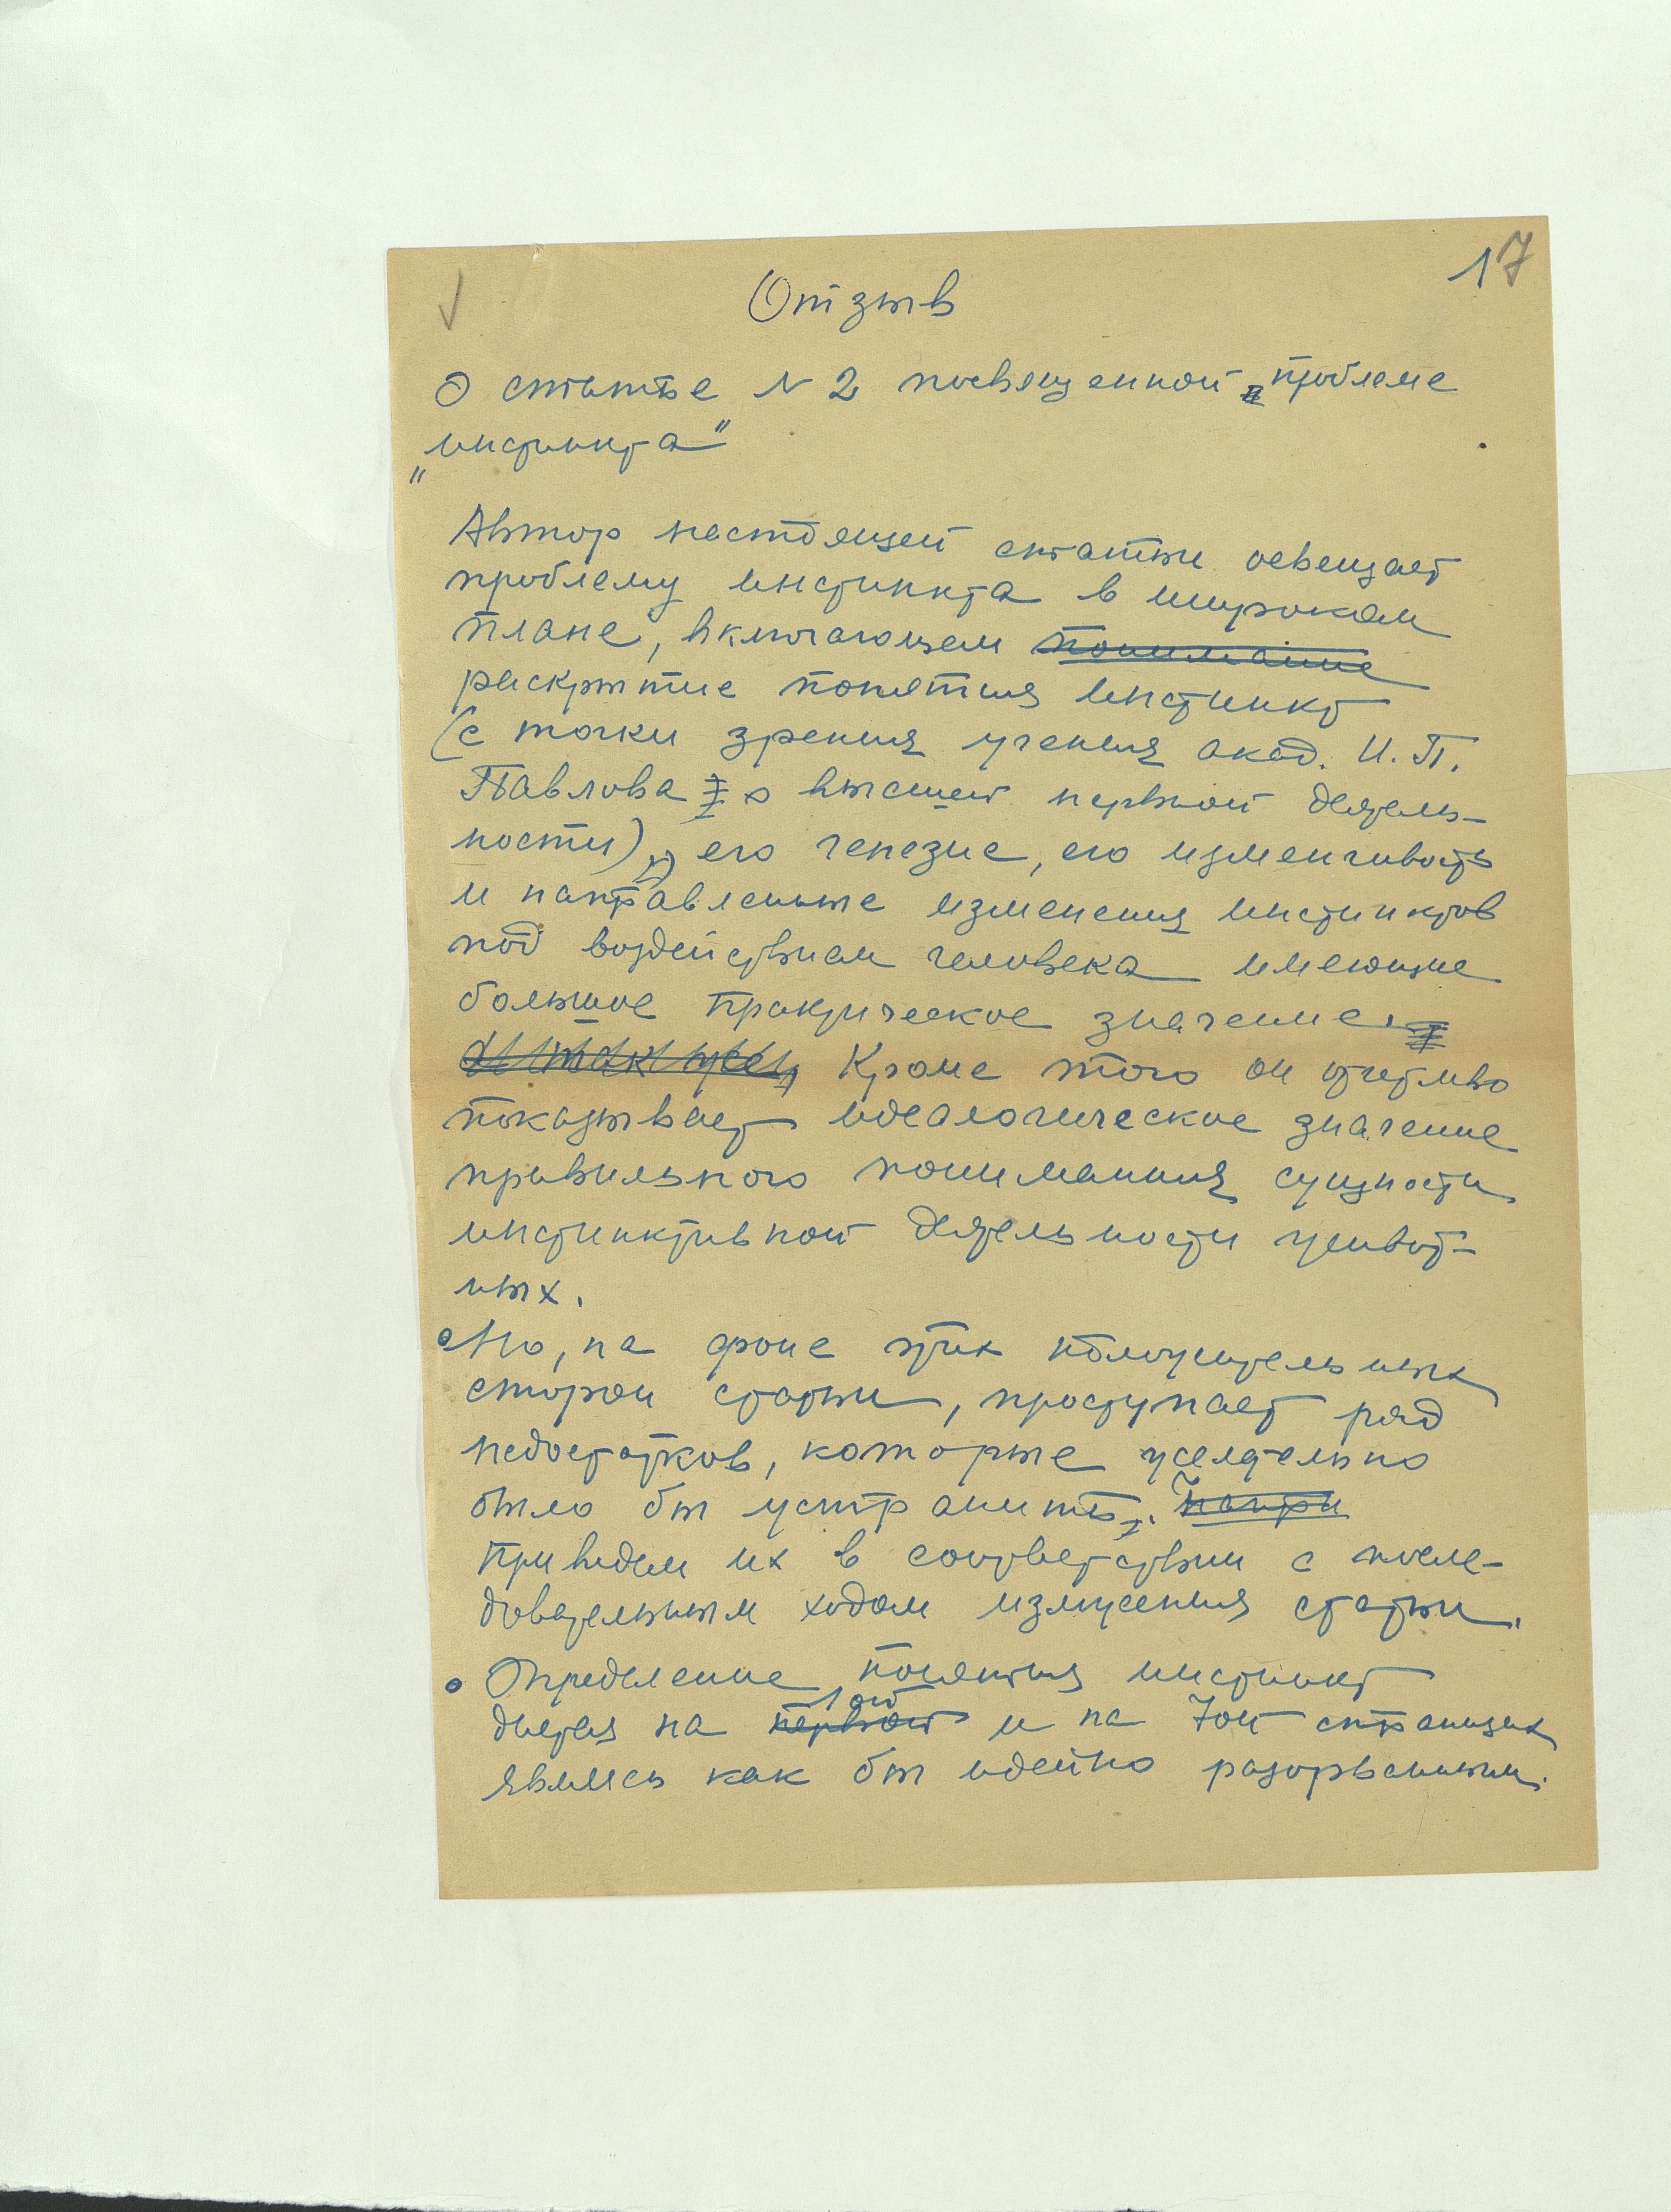 17
Отзыв
О статье N 2 посвященной проблеме
„инстинкта"
Автор настоящей статьи освещает
проблему инстинкта в широком
плане, включающем понимание
раскрытие понятия инстинкт
(с точки зрения учения акад. И. П.
Павлова о высшей нервной деятель-
ности), его генезис, его изменчивость
и направленные изменения инстинктов
под воздействием человека имеющие
большое практическое значение.
а так же, Кроме того он отчетливо
показывает идеологическое значение
правильного понимания сущности
инстинктивной деятельности живот-
ных.
Но, на фоне этих положительных
сторон статьи, проступает ряд
недостатков, которые желательно
было бы устранить. Напри
Приведем их в соответствии с после-
довательным ходом изложения статьи.
Определение понятия инстинкт
1ой
дается на первой и на 7ой страницах
являясь как бы идейно разорванным.